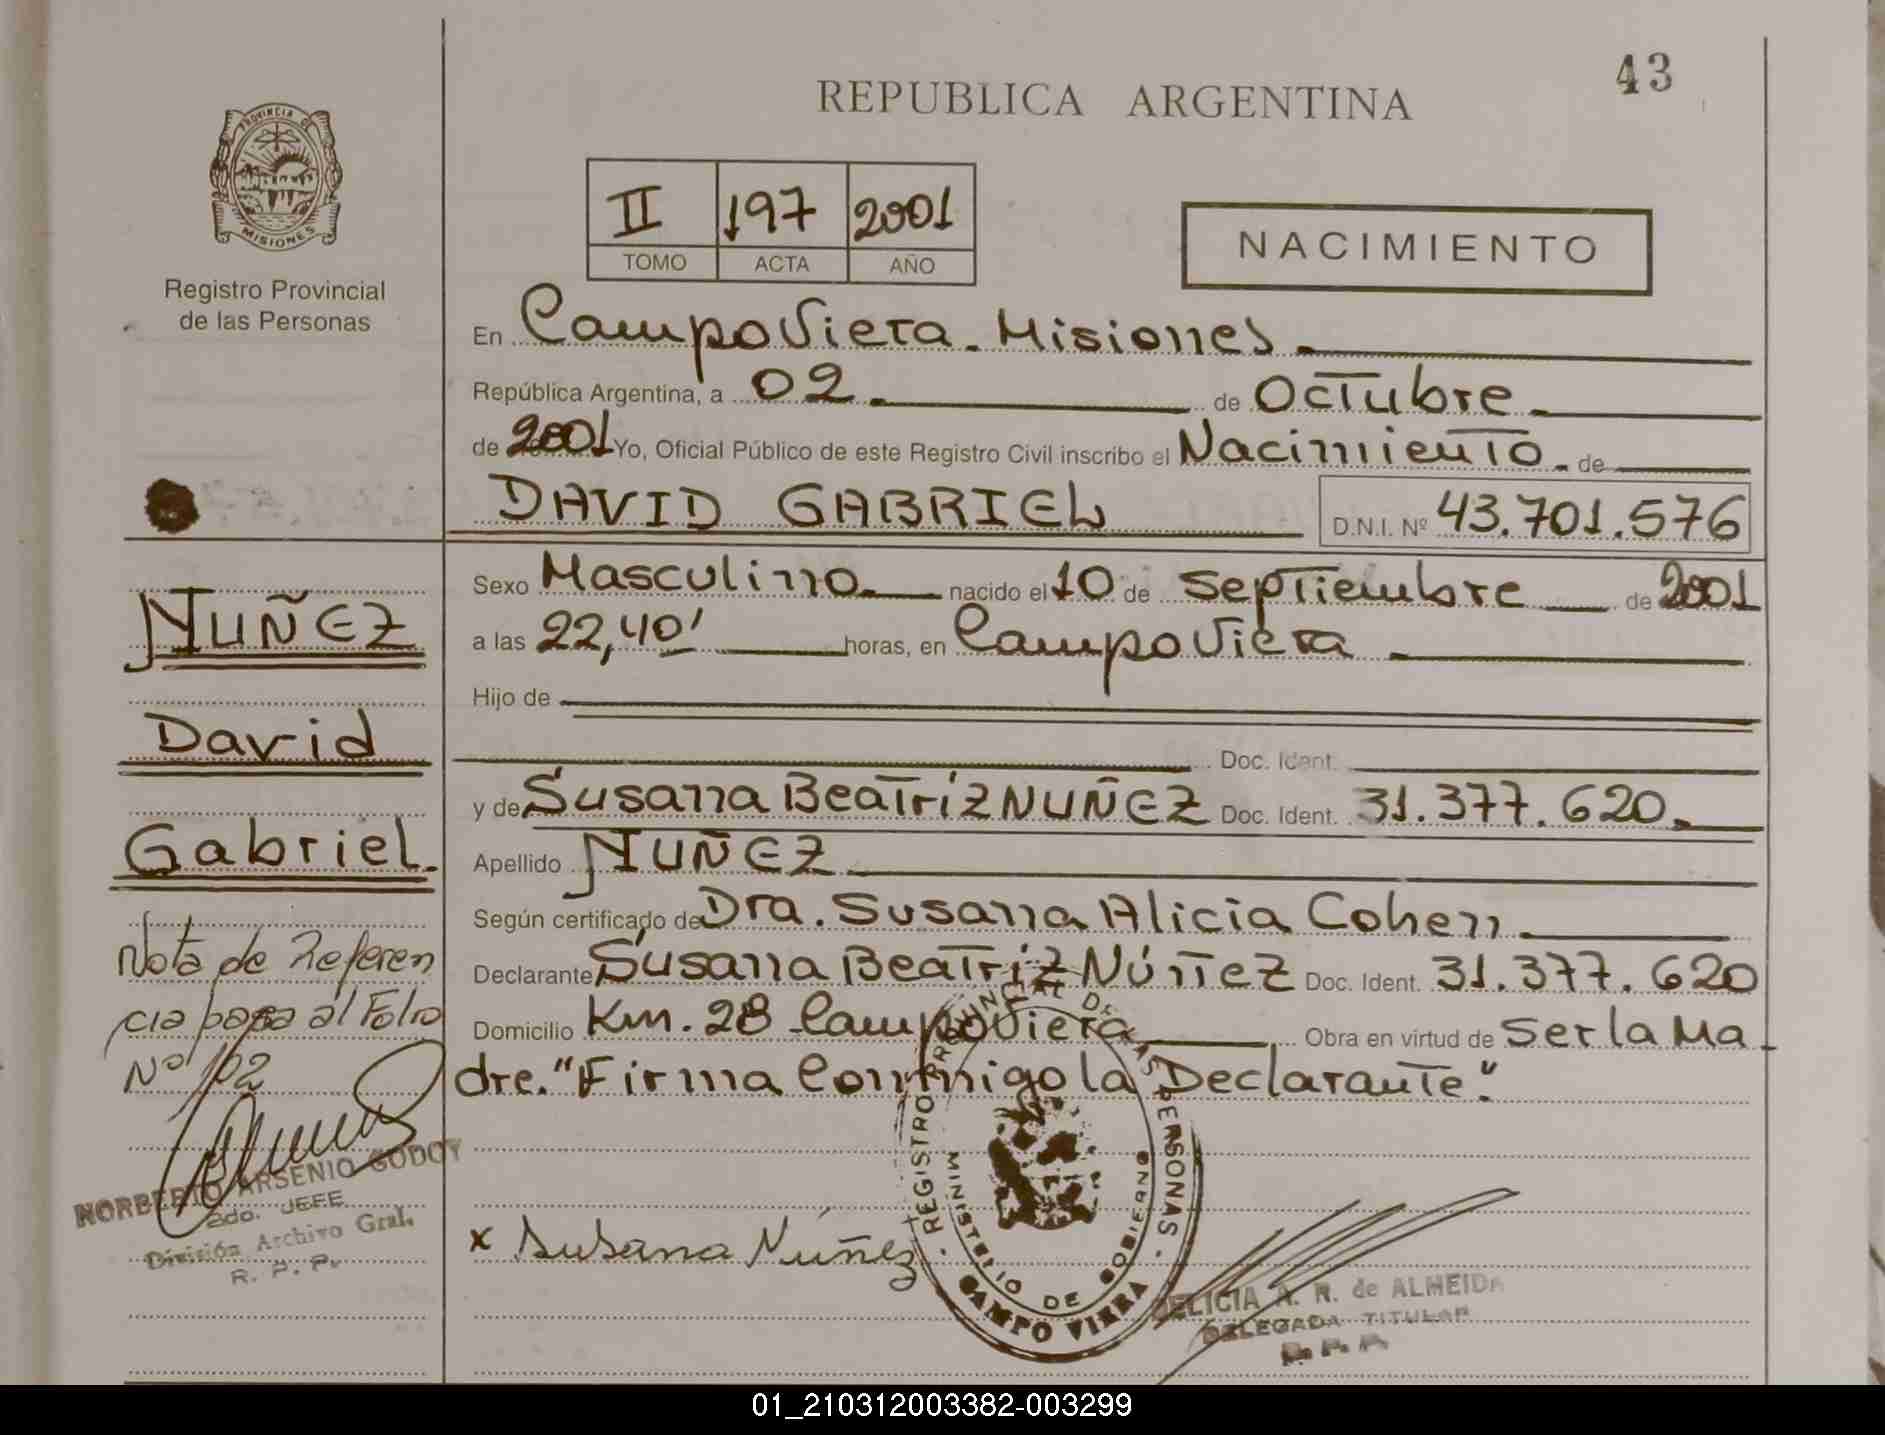 43
REPUBLICA ARGENTINA
PROVINCIA DE
MISIONES
Registro Provincial
de las Personas
II 197 2001
TOMO ACTA AÑO
NACIMIENTO
En Campo Viera - Misiones
República Argentina, a 02 de Octubre
de 2001 Yo, Oficial Público de este Registro Civil inscribo el Nacimiento de
DAVID GABRIEL D.N.I. Nº 43.701.576
Sexo Masculino nacido el 10 de septiembre de 2001
a las 22,40' horas, en Campo Viera
Hijo de
Doc. Ident.
y de Susana Beatriz NUÑEZ Doc. Ident. 31.377.620
Apellido NUÑEZ
Según certificado de Dra. Susana Alicia Cohen
Declarante Susana Beatriz Núñez Doc. Ident. 31.377.620
Domicilio Km. 28 Campo Viera Obra en virtud de Ser la Ma-
dre. "Firma Conmigo la Declarante".
NUÑEZ
David
Gabriel.
Nota de Referen
cia pasa al Folio
Nº 102
NORBERTO ARSENIO GODOY
2do. JEFE
División Archivo Gral.
R. P. P.
x Susana Núñez
REGISTRO PROVINCIAL DE LAS PERSONAS
MINISTERIO DE GOBIERNO
CAMPO VIERA
DELICIA A. R. de ALMEIDA
DELEGADA TITULAR
R. P. P.
01_210312003382-003299